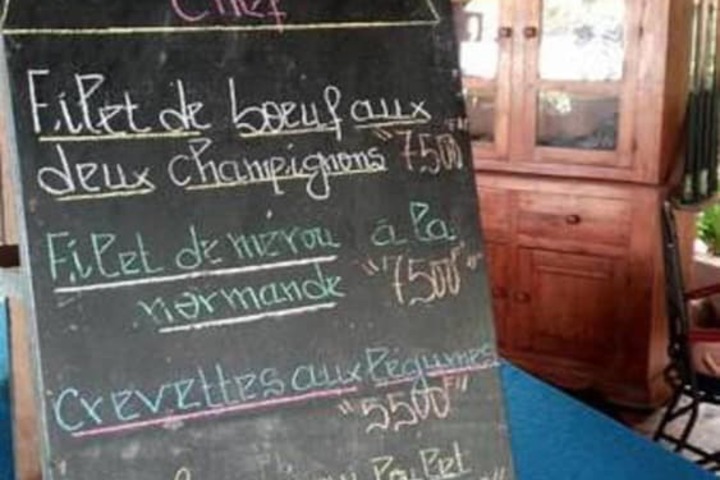 Chef
Filet de boeuf aux
deux champignons "7500"
Filet de mérou à la
normande "7500"
Crevettes aux légumes
"5500"
Poulet